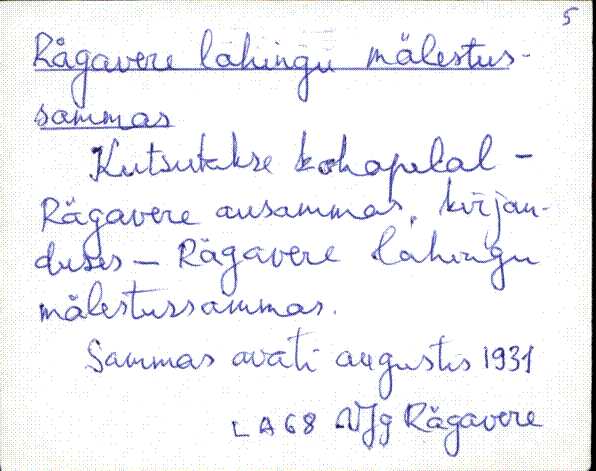 5
Rägavere lahingu mälestus-
sammas
Kutsutakse kohapeal -
Rägavere ausammas, kirjan-
duses - Rägavere lahingu
mälestussammas.
Sammas avati augustis 1931
LA68 VJg Rägavere